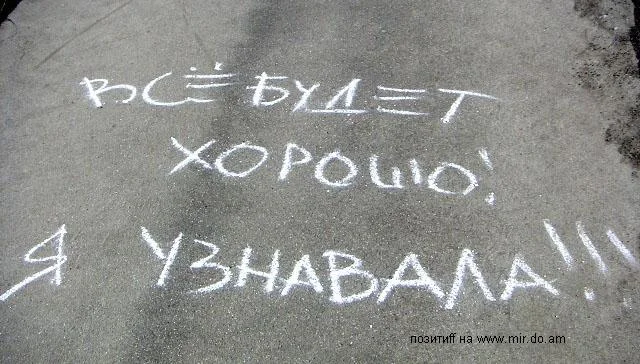 ВСЁ БУДЕТ
ХОРОШО!
Я УЗНАВАЛА!!!
позитиff на www.mir.do.am